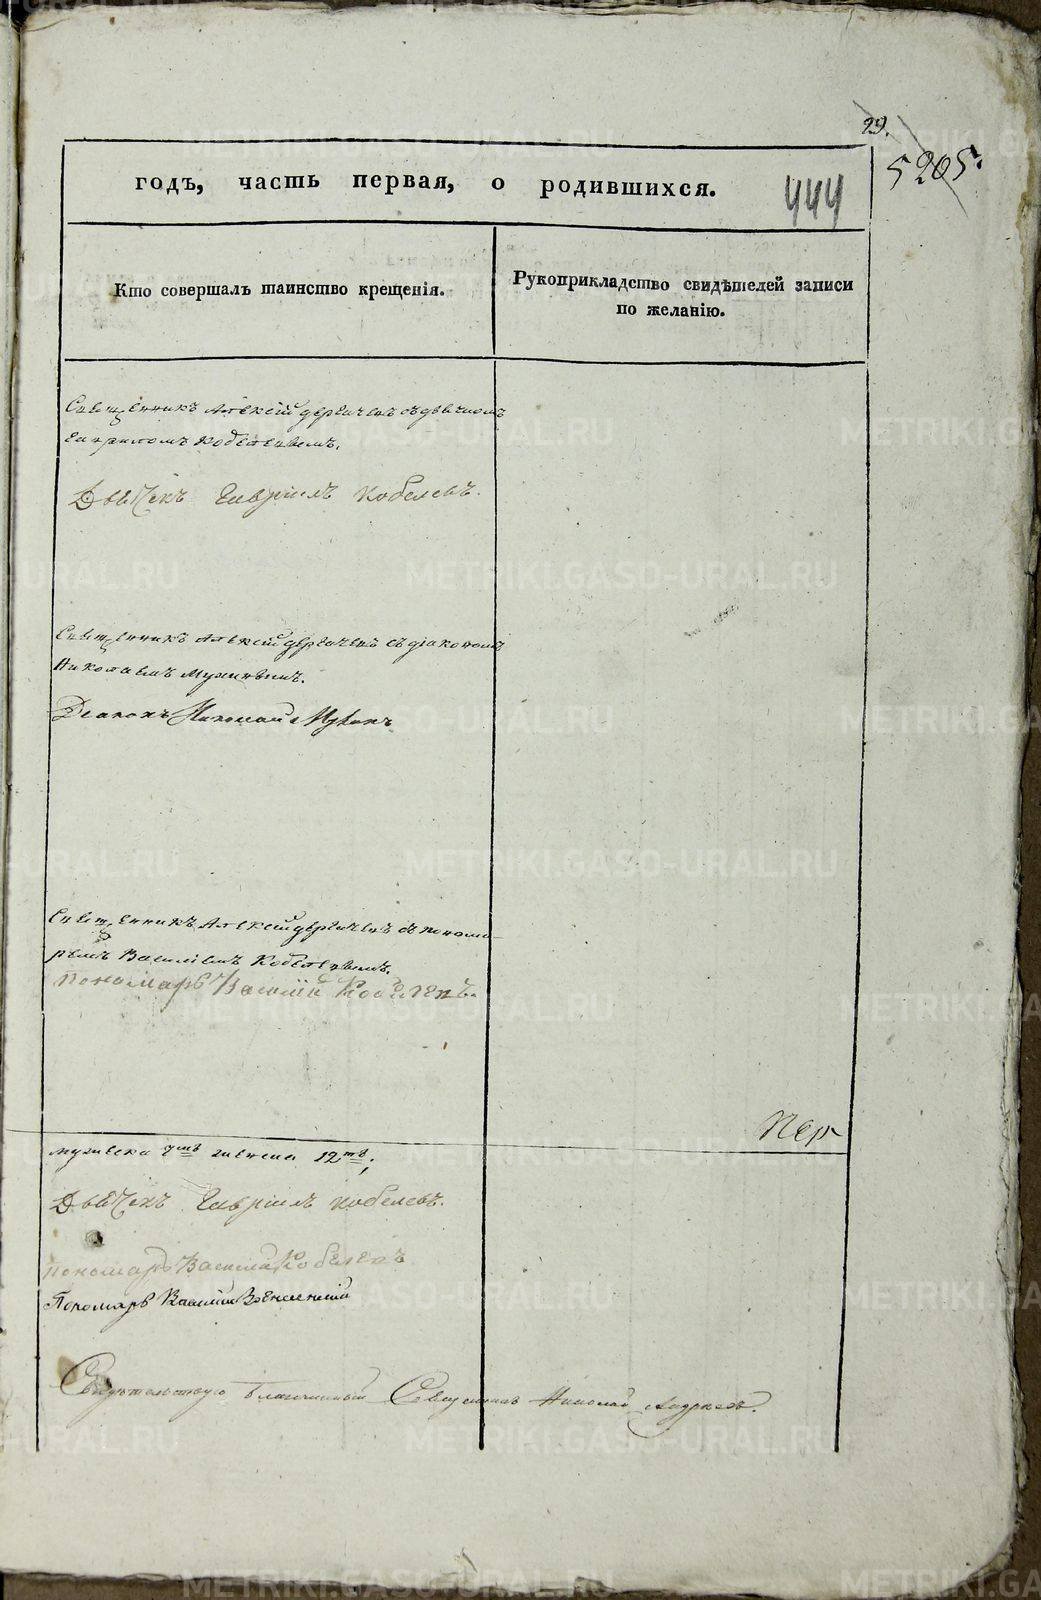 29.
5205.
444
годъ, часть первая, о родившихся.
Кто совершалъ таинство крещенія.
Рукоприкладство свидѣтелей записи
по желанію.
Священникъ Алексій съ дьячкомъ
Гавриломъ Кобелевымъ.
Дьячекъ Гавріилъ Кобелевъ.
Священникъ Алексій съ діакономъ
Николаемъ Мухинымъ.
Діаконъ Николай Мухинъ
Священникъ Алексій съ понома-
ремъ Василіемъ Кобелевымъ.
Пономарь Василій Кобелевъ.
Пер
мужеска женска 12ть;
Дьячекъ Гавріилъ Кобелевъ.
Пономарь Василій Кобелевъ
Пономарь Василій
Свидѣтельствую Благочинный Священникъ Николай
METRIKI.GASO-URAL.RU